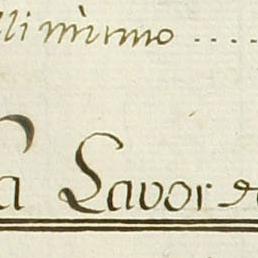 lli mìnimo ....
a Lavor de